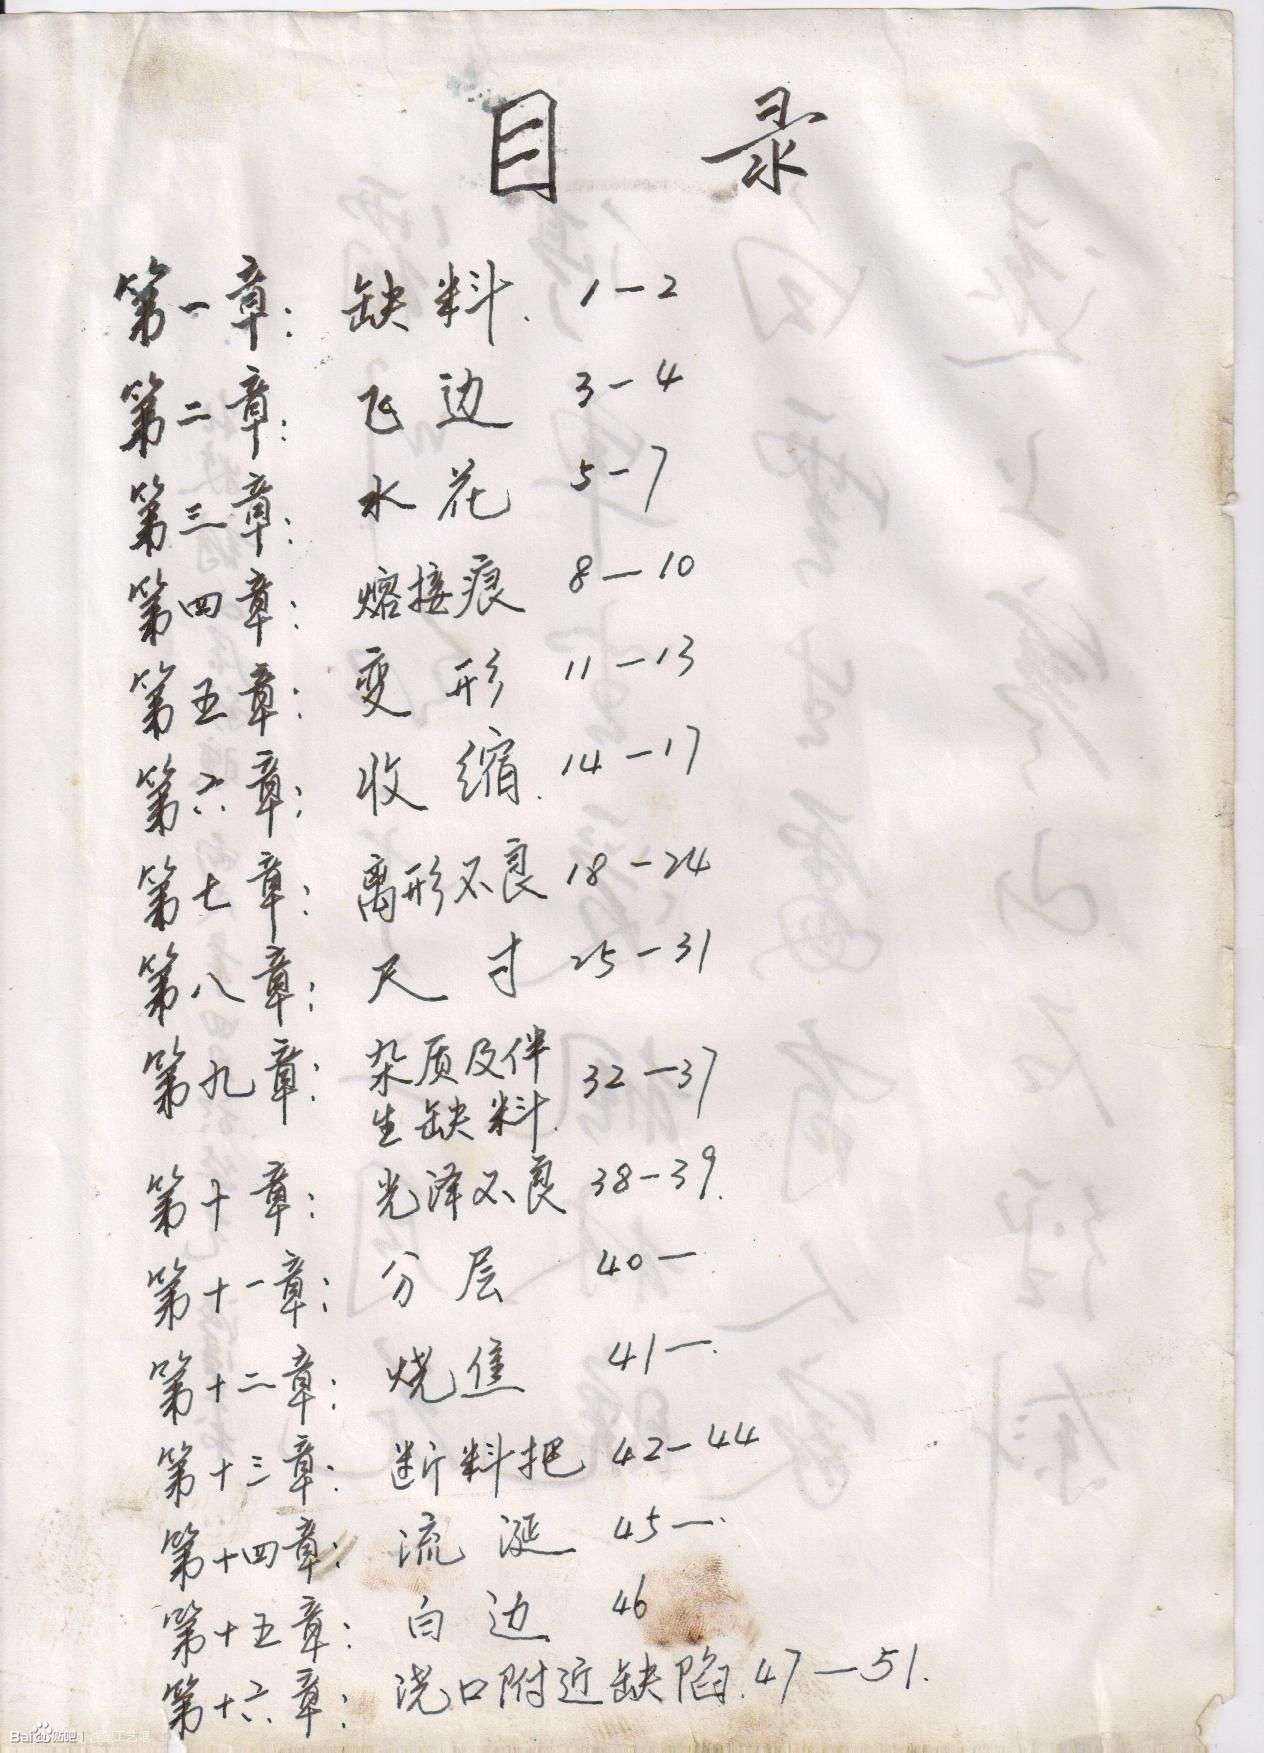 目录
第一章: 缺料. 1-2
第二章: 飞边 3-4
第三章: 水花 5-7
第四章: 熔接痕 8-10
第五章: 变形 11-13
第六章: 收缩. 14-17
第七章: 离形不良 18-24
第八章: 尺寸 25-31
第九章: 杂质及伴 32-37
生缺料.
第十章: 光泽不良 38-39.
第十一章: 分层 40-
第十二章: 烧焦 41-.
第十三章: 断料把 42-44
第十四章: 流涎 45-.
第十五章: 白边 46
第十六章: 浇口附近缺陷. 47-51.
Baidu贴吧